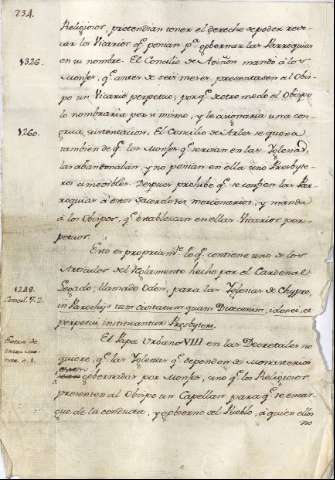 234.
Religiosos, pretendian tener el derecho de poder revo-
car los Vicarios q.e ponian p.a gobernar las Parroquias
en su nombre. El Concilio de Aviñon mandó á los
1326.
Monjes, q.e antes de seis meses presentassen al Obis-
po un Vicario perpetuo; por q.e de otro modo el Obispo
lo nombraria por si mismo, y le asignaria una con-
grua sustentacion. El Concilio de Arles se quexa
1260.
tambien de q.e los Monjes q.e servian en las Yglesias,
las abandonaban, y no ponian en ellas sino Presbyte-
ros amovibles. Despues prohibe q.e se confien las Par-
roquias á estos Sacerdotes mercenarios, y manda
á los Obispos, q.e establezcan en ellas Vicarios per-
petuos.
Esto es propriam.te lo q.e contiene uno de los
Articulos del Reglamento hecho por el Cardenal
1248.
Legado, llamado Odon, para las Yglesias de Chypre,
in Parochijs tam civitatum quam Diœcesum, idonei, et
perpetui instituantur Presbyteri.
El Papa Urbano VIII en las Decretales no
quiere, q.e las Yglesias q.e dependen de Monasterios
gobernadas por Monjes, sino q.e los Religiosos
presenten al Obispo un Capellan para q.e se encar-
gue de la conducta, y gobierno del Pueblo, á quien ellos
no